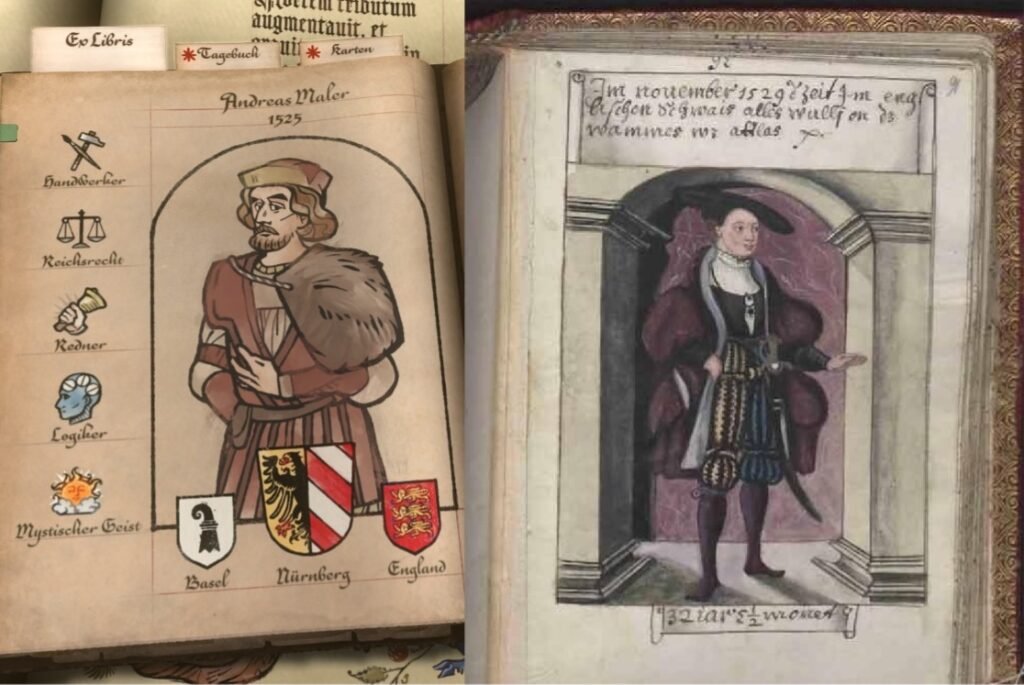 tributum
augmentauit, et
in
Ex Libris
Tagebuch
Karten
Andreas Maler
1525
Handwerker
Reichsrecht
Redner
Logiker
Mystischer Geist
Basel
Nürnberg
England
Im nouember 1529 Zeit Im eng
lischen Schwais alles wullj on ds
wammes wz atlas
32 iar 2½ monet